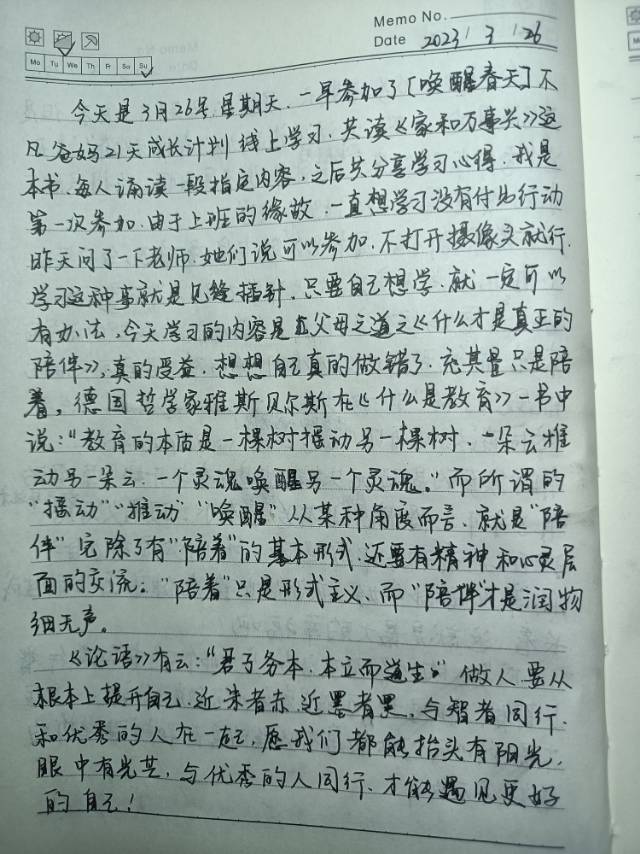 Memo No.
Mo Tu We Th Fr Sa Su
Date 2023 / 3 / 26
今天是3月26号,星期天.一早参加了[唤醒春天]不
凡爸妈21天成长计划线上学习.共读《家和万事兴》这
本书.每人诵读一段指定内容,之后共分享学习心得.我是
第一次参加.由于上班的缘故.一直想学习没有付出行动
昨天问了一下老师.她们说可以参加.不打开摄像头就行.
学习这种事就是见缝插针.只要自己想学.就一定可以
有办法.今天学习的内容是 父母之道之《什么才是真正的
陪伴》,真的受益.想想自己真的做错了.充其量只是陪
着。德国哲学家雅斯贝尔斯在《什么是教育》一书中
说:"教育的本质是一棵树摇动另一棵树.一朵云推
动另一朵云.一个灵魂唤醒另一个灵魂."而所谓的
"摇动""推动""唤醒"从某种角度而言.就是"陪
伴"它除了有"陪着"的基本形式.还要有精神和心灵层
面的交流;"陪着"只是形式主义、而"陪伴"才是润物
细无声。
《论语》有云:"君子务本.本立而道生。"做人要从
根本上提升自己.近朱者赤.近墨者黑.与智者同行.
和优秀的人在一起.愿我们都能抬头有阳光.
眼中有光芒.与优秀的人同行.才能遇见更好
的自己!